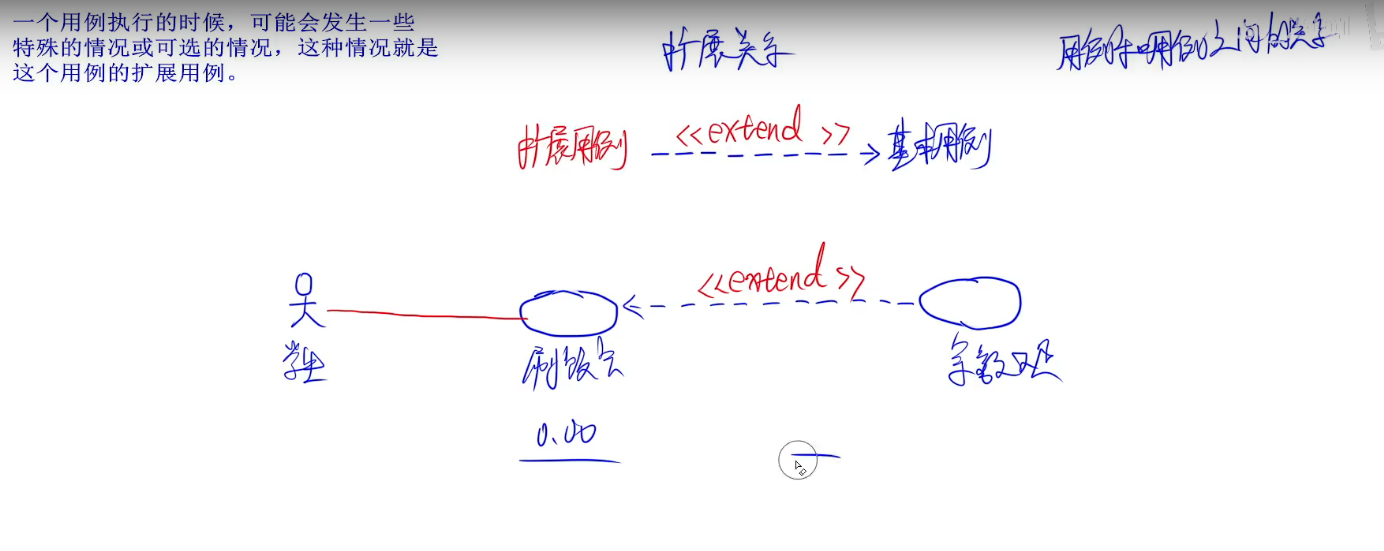 一个用例执行的时候，可能会发生一些
特殊的情况或可选的情况，这种情况就是
这个用例的扩展用例。
扩展关系
用例和用例之间的关系
扩展用例 <<extend>> 基本用例
<<extend>>
学生
刷饭卡
0.00